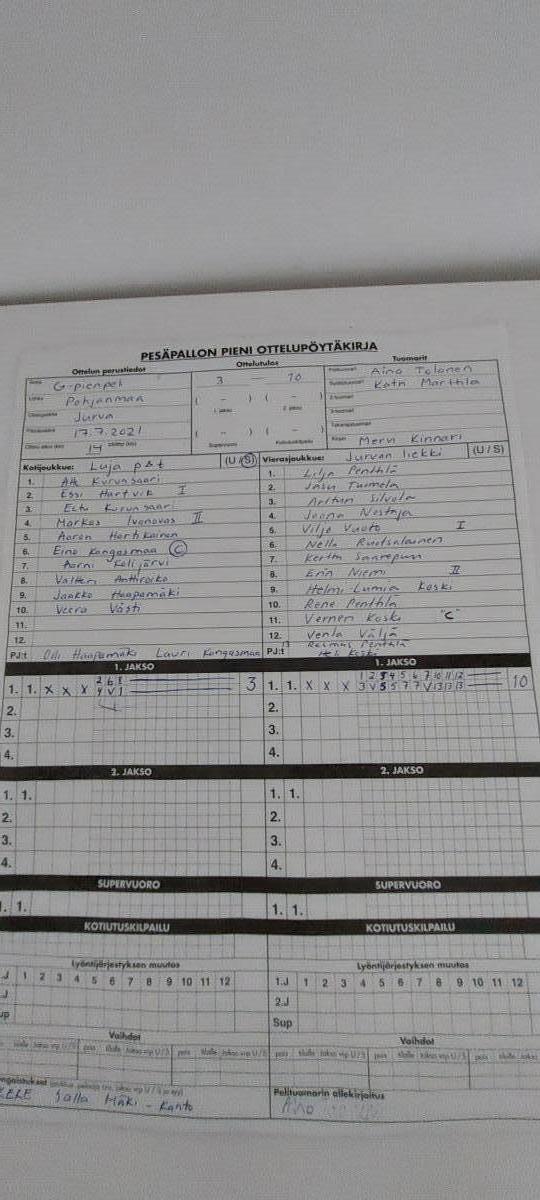 PESÄPALLON PIENI OTTELUPÖYTÄKIRJA
Ottelun perustiedot Ottelutulos Tuomarit
G-pienpel 3 — 10 Aino Tolonen
Lohko Pohjanmaa ( – ) ( – ) Katri Marttila
Jurva 1. jakso 2. jakso
17.7.2021 ( – ) ( – )
14 Supervuoro Kotiutuskilpailu Kirjuri Mervi Kinnari
Kotijoukkue: Luja p&t (U / S) Vierasjoukkue: Jurvan liekki (U / S)
1. Kurunsaari
2. Essi Hartvik I
3. Eetu Kurunsaari
4. Markus II
5. Aaron Hartikainen
6. Eino Kangasmaa C
7. Aarni Kolijärvi
8. Valtteri Anttiroiko
9. Jaakko Haapamäki
10. Veera Västi
11.
12.
PJ:t Olli Haapamäki Lauri Kangasmaa
1. Lilja Penttilä
2. Jasu Tuimela
3. Artturi Silvola
4. Joona Nostaja
5. Viljo Vuoto I
6. Nella Ruotsalainen
7. Kerttu
8. Erin Niemi II
9. Helmi-Lumia Koski
10. Rene Penttilä
11. Verneri Koski "C"
12. Venla Väljä
13 Penttilä
PJ:t Koski
1. JAKSO 1. JAKSO
2 6 8 1 2 3 4 5 6 7 10 11 12
1. 1. X X X 4 V 1 3 1. 1. X X X 3 V 5 5 7 7 V 13 13 13 10
2. 2.
3. 3.
4. 4.
2. JAKSO 2. JAKSO
1. 1. 1. 1.
2. 2.
3. 3.
4. 4.
SUPERVUORO SUPERVUORO
1. 1. 1. 1.
KOTIUTUSKILPAILU KOTIUTUSKILPAILU
Lyöntijärjestyksen muutos Lyöntijärjestyksen muutos
.J 1 2 3 4 5 6 7 8 9 10 11 12 1.J 1 2 3 4 5 6 7 8 9 10 11 12
.J 2.J
up Sup
Vaihdot Vaihdot
Pelituomarin allekirjoitus
Salla Mäki-Kanto